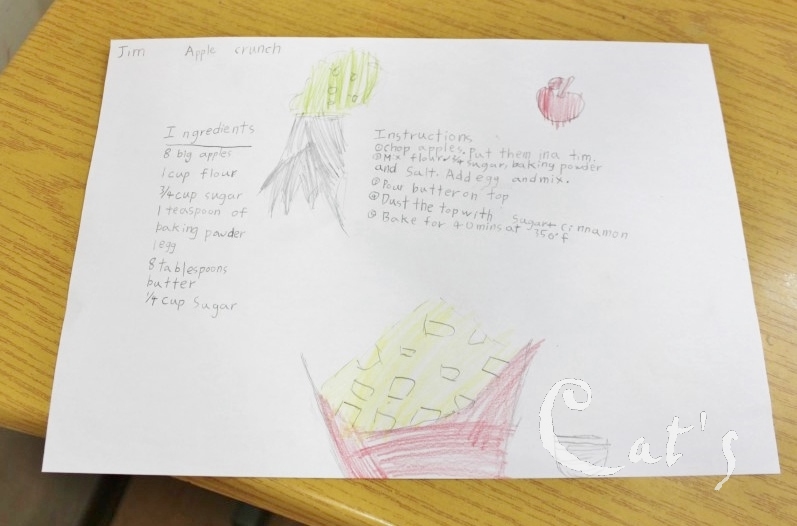 Jim Apple crunch
Ingredients
8 big apples
1 cup flour
3/4 cup sugar
1 teaspoon of
baking powder
1 egg
8 tablespoons
butter
1/4 cup Sugar
Instructions
① chop apples. Put them in a tim.
② Mix flour, 3/4 sugar, baking powder
and salt. Add egg and mix.
③ Pour butter on top
④ Dust the top with sugar + cinnamon
⑤ Bake for 40 mins at 350°f
Cat's